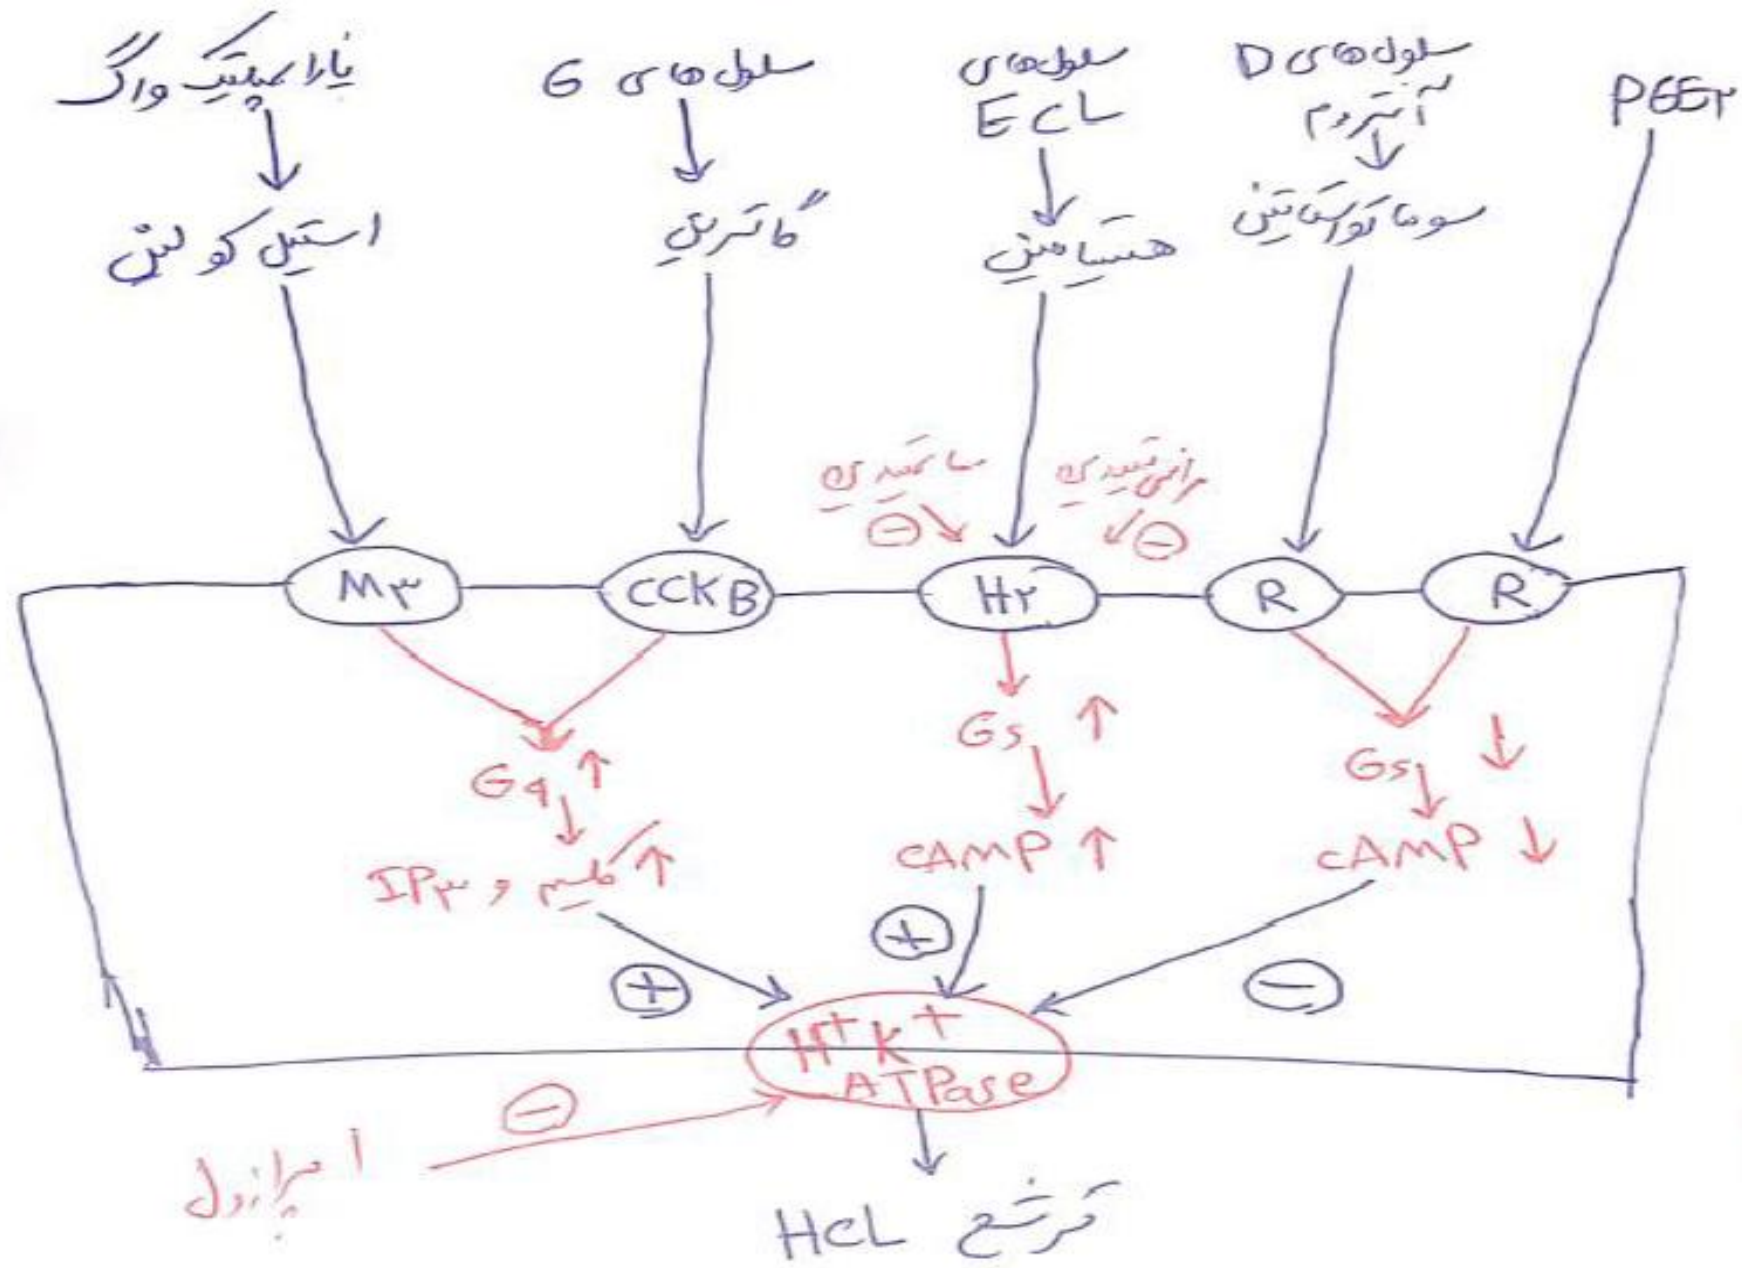 پاراسمپاتیک واگ
سلول‌های G
سلول‌های
ECL
سلول‌های D
آنتروم
PGE۲
استیل کولین
گاسترین
هیستامین
سوماتواستاتین
سایمتیدین
رانی تیدین
⊖
⊖
M۳
CCKB
H۲
R
R
Gq ↑
Gs ↑
Gs ↓
IP۳ و کلسیم ↑
cAMP ↑
cAMP ↓
⊕
⊕
⊖
H⁺ K⁺
ATPase
⊖
امپرازول
ترشح HCL